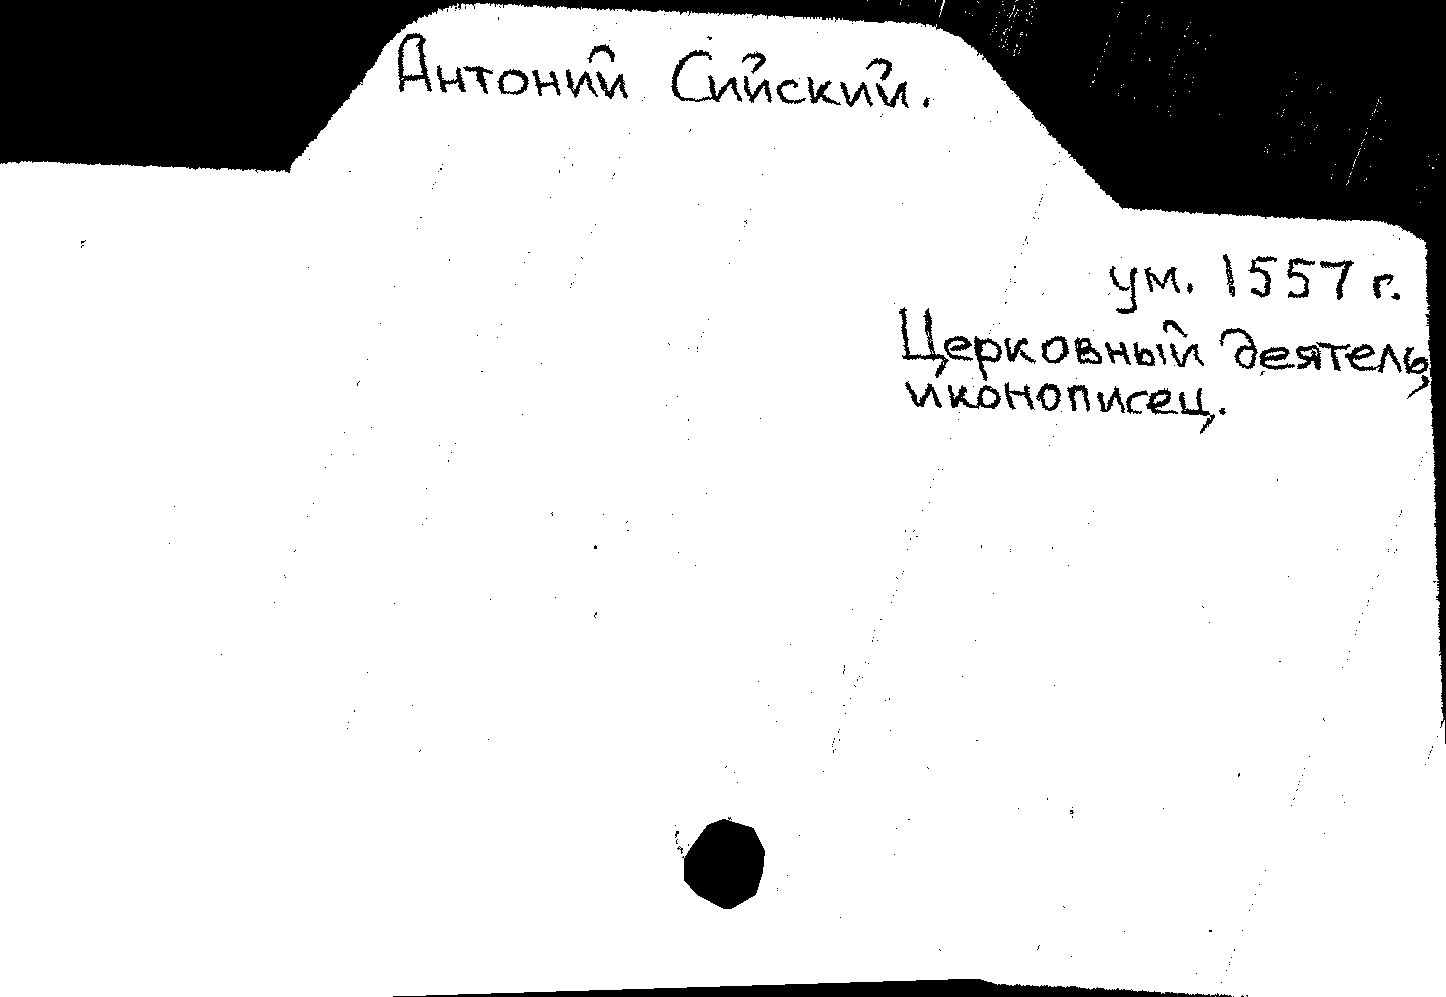 Антоний Сийский.
ум. 1557 г.
Церковный деятель,
иконописец.